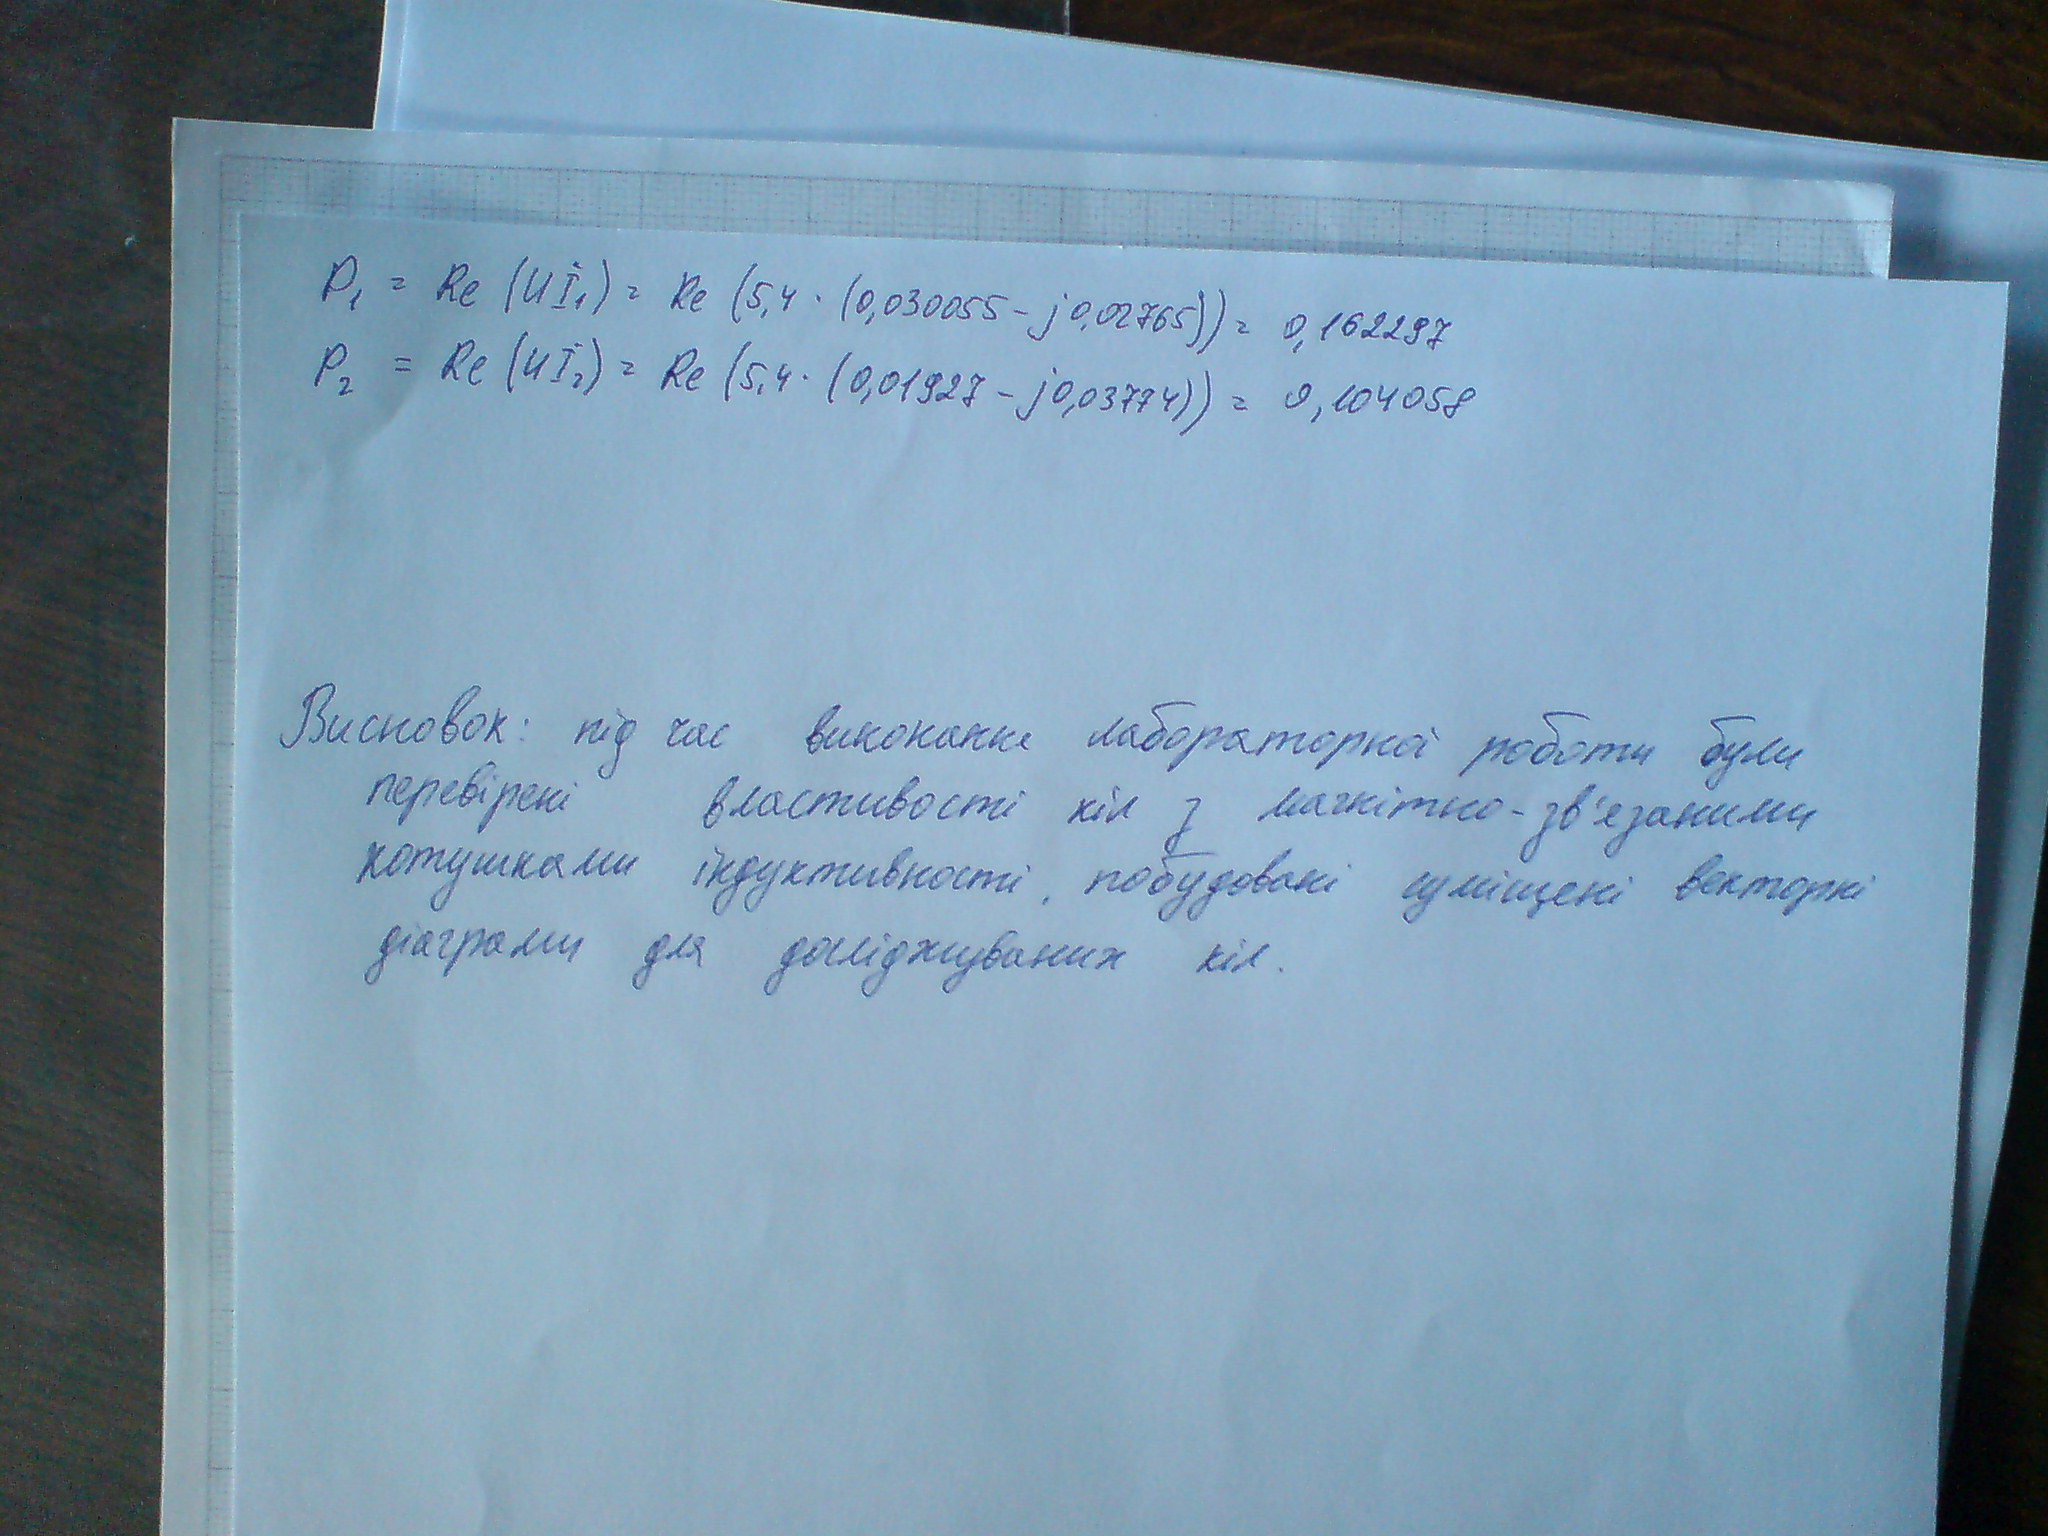 P₁ = Re (U İ₁) = Re (5,4 · (0,030055 - j0,02765)) = 0,162297
P₂ = Re (U İ₂) = Re (5,4 · (0,01927 - j0,03774)) = 0,104058
Висновок: під час виконання лабораторної роботи були
перевірені властивості кіл з магнітно-зв'язаними
котушками індуктивності, побудовані суміщені векторні
діаграми для досліджуваних кіл.